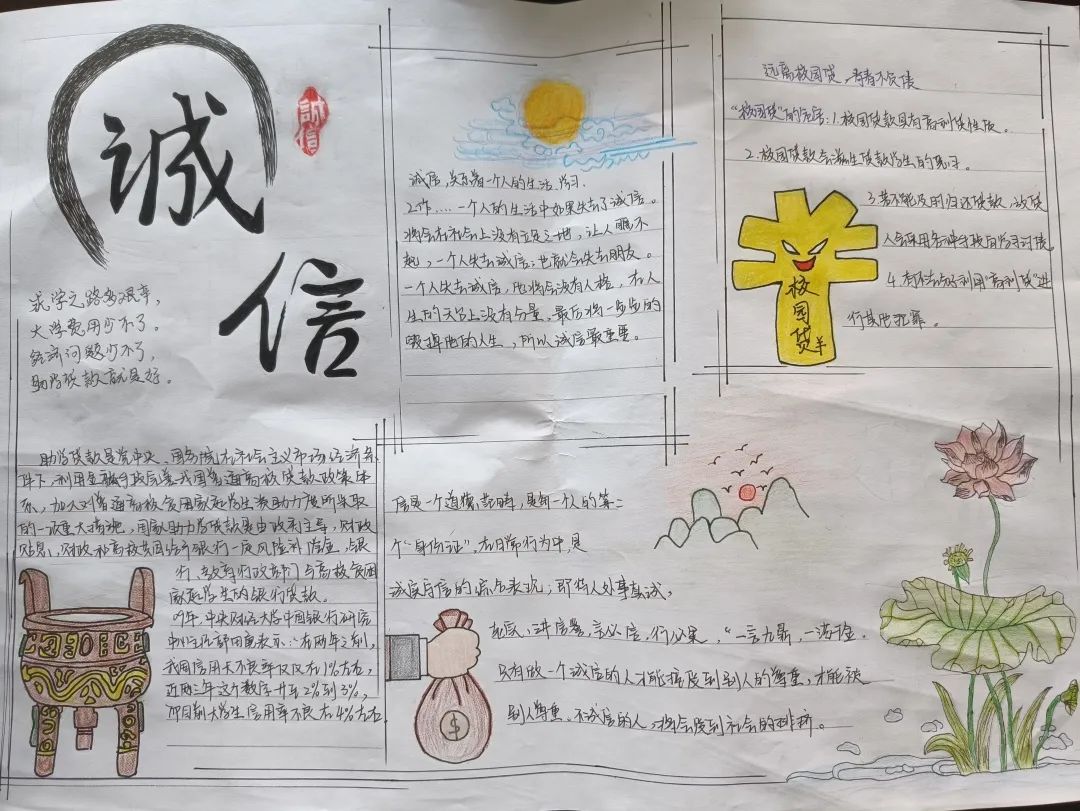 诚
信
誠信
求学之路多艰辛，
大学费用少不了。
经济问题少不了，
助学贷款就是好。
诚信，关系着一个人的生活、学习、
工作....一个人的生活中如果失去了诚信。
将会在社会上没有立足之地，让人瞧不
起，一个人失去诚信，也就会失去朋友。
一个人失去诚信，他将会没有人格，在人
生的天平上没有分量，最后将一步步的
毁掉他的人生，所以诚信最重要。
远离校园贷，青春不负债
"校园贷"的危害：1.校园贷款具有高利贷性质。
2.校园贷款会滋生贷款学生的恶习。
3.若不能及时归还贷款，放贷
人会采用各种手段向学习讨债。
4.有不法分子利用"高利贷"进
行其他犯罪。
校园贷
助学贷款是党中央、国务院在社会主义市场经济条
件下，利用金融手段完善我国普通高校贷款政策体
系，加大对普通高校贫困家庭学生资助力度所采取
的一项重大措施，国家助力学贷款是由政府主导，财政
贴息，财政和高校共同给予银行一定风险补偿金，银
行、教育行政部门与高校贫困
家庭学生的银行贷款。
09年，中央财经大学中国银行研究
表示：有两年之前，
我国信用卡不良率仅仅在1%左右，
近两三年这个数字升至2%到3%，
而目前大学生信用率不良在4%左右
信是一个道德范畴，是每一个人的第二
个"身份证"，在日常行为中，是
诚实与信的综合表现；即待人处事真诚，
老实，讲信誉，言必信，行必果，"一言九鼎，一诺千金，
只有做一个诚信的人才能擭得到别人的尊重，才能被
别人尊重、不诚信的人，将会受到社会的排挤。
$